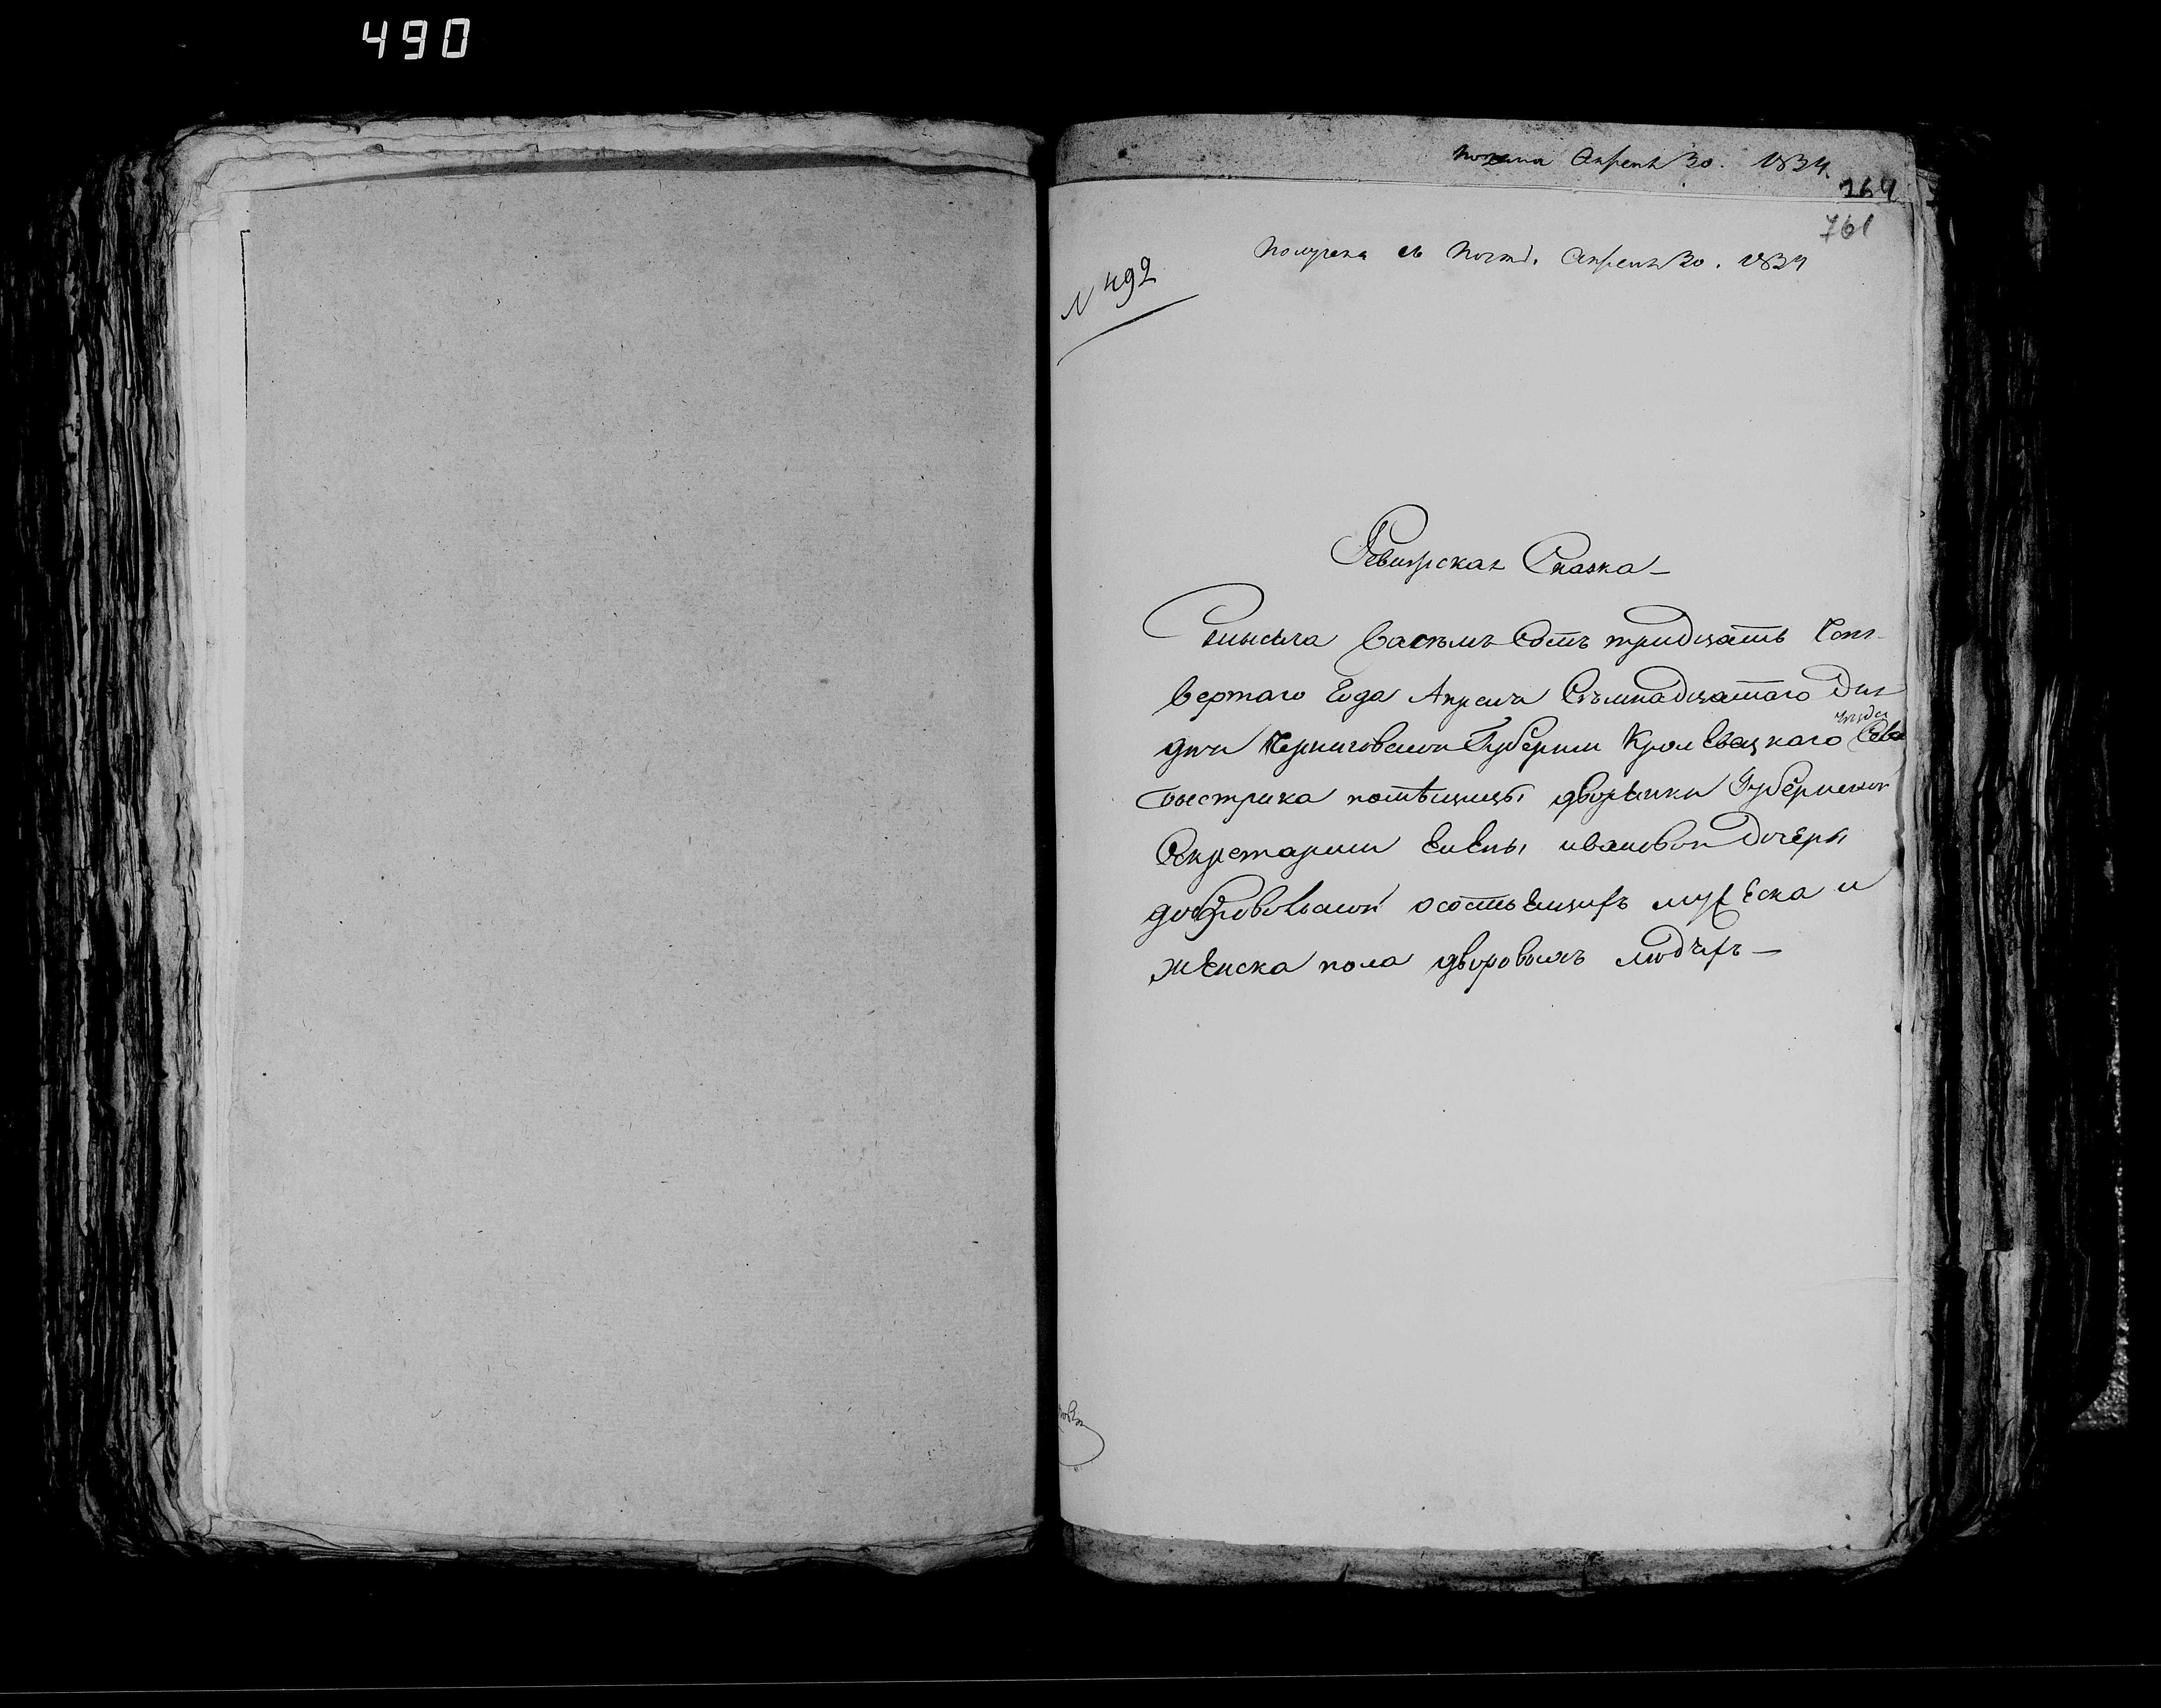 490
Апреля 30. 1834.
764
761
Получена съ почт. Апреля 30. 1834
N 492
Ревизская Сказка
Тысяча Васемь Сотъ тридцать Чет-
вертаго Года Апреля Семнадцатого Дня
Черниговской Губернии Кролевецкаго Села
уезда
быстрика помѣщицы дворянки Губернской
Секретарши Елены ивановой дочери
добровольской осостоящихъ мужеска и
женска пола дворовыхъ людѣхъ